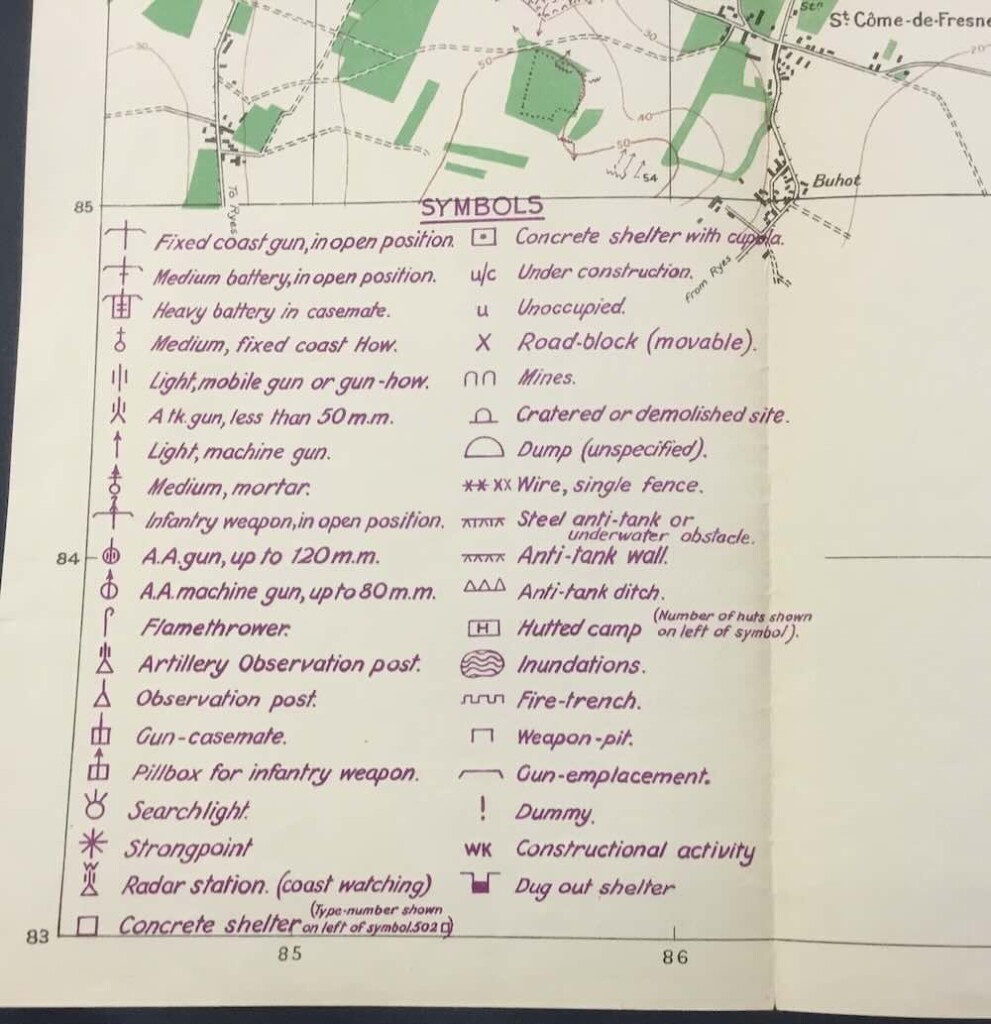 Stn
St Côme-de-Fresne
30
20
50
40
50
5A
Buhot
To Ryes
from Ryes
85
SYMBOLS
Fixed coast gun, in open position.
Medium battery, in open position.
Heavy battery in casemate.
Medium, fixed coast How.
Light, mobile gun or gun-how.
A tk. gun, less than 50 m.m.
Light, machine gun.
Medium, mortar.
Infantry weapon, in open position.
84
A.A. gun, up to 120 m.m.
A.A. machine gun, up to 80 m.m.
Flamethrower.
Artillery Observation post.
Observation post.
Gun-casemate.
Pillbox for infantry weapon.
Searchlight.
Strongpoint
Radar station. (coast watching)
Concrete shelter (Type-number shown
on left of symbol. 502 □)
Concrete shelter with cupola.
u/c Under construction.
u Unoccupied.
X Road-block (movable).
Mines.
Cratered or demolished site.
Dump (unspecified).
** XX Wire, single fence.
Steel anti-tank or
underwater obstacle.
Anti-tank wall.
Anti-tank ditch.
H Hutted camp (Number of huts shown
on left of symbol).
Inundations.
Fire-trench.
Weapon-pit.
Gun-emplacement.
! Dummy.
WK Constructional activity
Dug out shelter
83
85
86